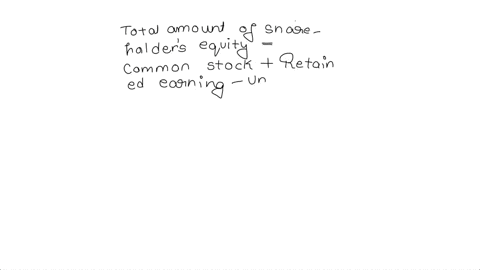 Total amount of snare-
halder's equity =
Common stock + Retain
ed earning - un